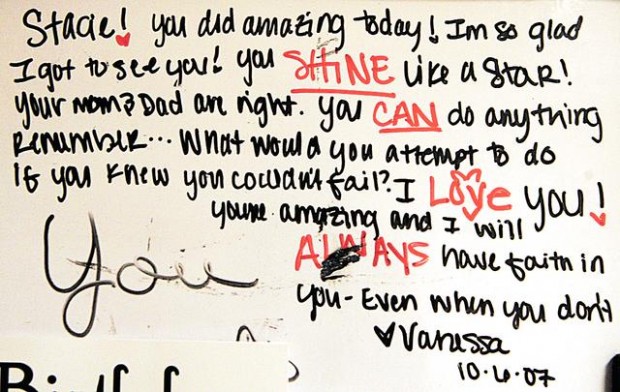 Stacie! you did amazing today! Im so glad
I got to see you! you SHINE like a star!
your mom & Dad are right. you CAN do anything
Remember... What would you attempt to do
If you knew you couldn't fail? I Love you!
you're amazing and I will
ALWAYS have faith in
you - Even when you don't
♥Vanessa
10.6.07
You